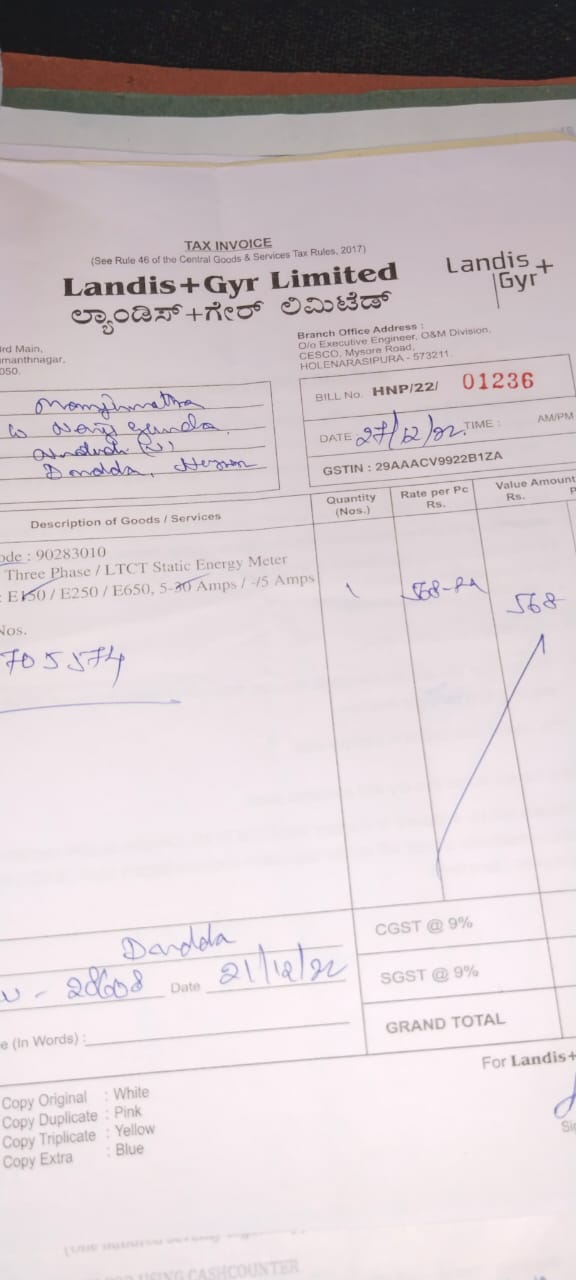 TAX INVOICE
(See Rule 46 of the Central Goods & Services Tax Rules, 2017)
Landis+Gyr Limited
ಲ್ಯಾಂಡಿಸ್+ಗೇರ್ ಲಿಮಿಟೆಡ್
Landis
Gyr+
rd Main,
manthnagar,
050.
Branch Office Address :
O/o Executive Engineer, O&M Division,
CESCO, Mysore Road,
HOLENARASIPURA - 573211.
BILL No. HNP/22/ 01236
DATE 27/12/22 TIME : AM/PM
GSTIN : 29AAACV9922B1ZA
Dandda,
Description of Goods / Services
Quantity (Nos.)
Rate per Pc Rs.
Value Amount Rs.
ode : 90283010
Three Phase / LTCT Static Energy Meter
: E150 / E250 / E650, 5-30 Amps / -/5 Amps
1
568
Nos.
705574
Dandda
28608 Date 21/12/22
CGST @ 9%
SGST @ 9%
GRAND TOTAL
e (In Words) :
For Landis+
Copy Original : White
Copy Duplicate : Pink
Copy Triplicate : Yellow
Copy Extra : Blue
Si
USING CASHCOUNTER